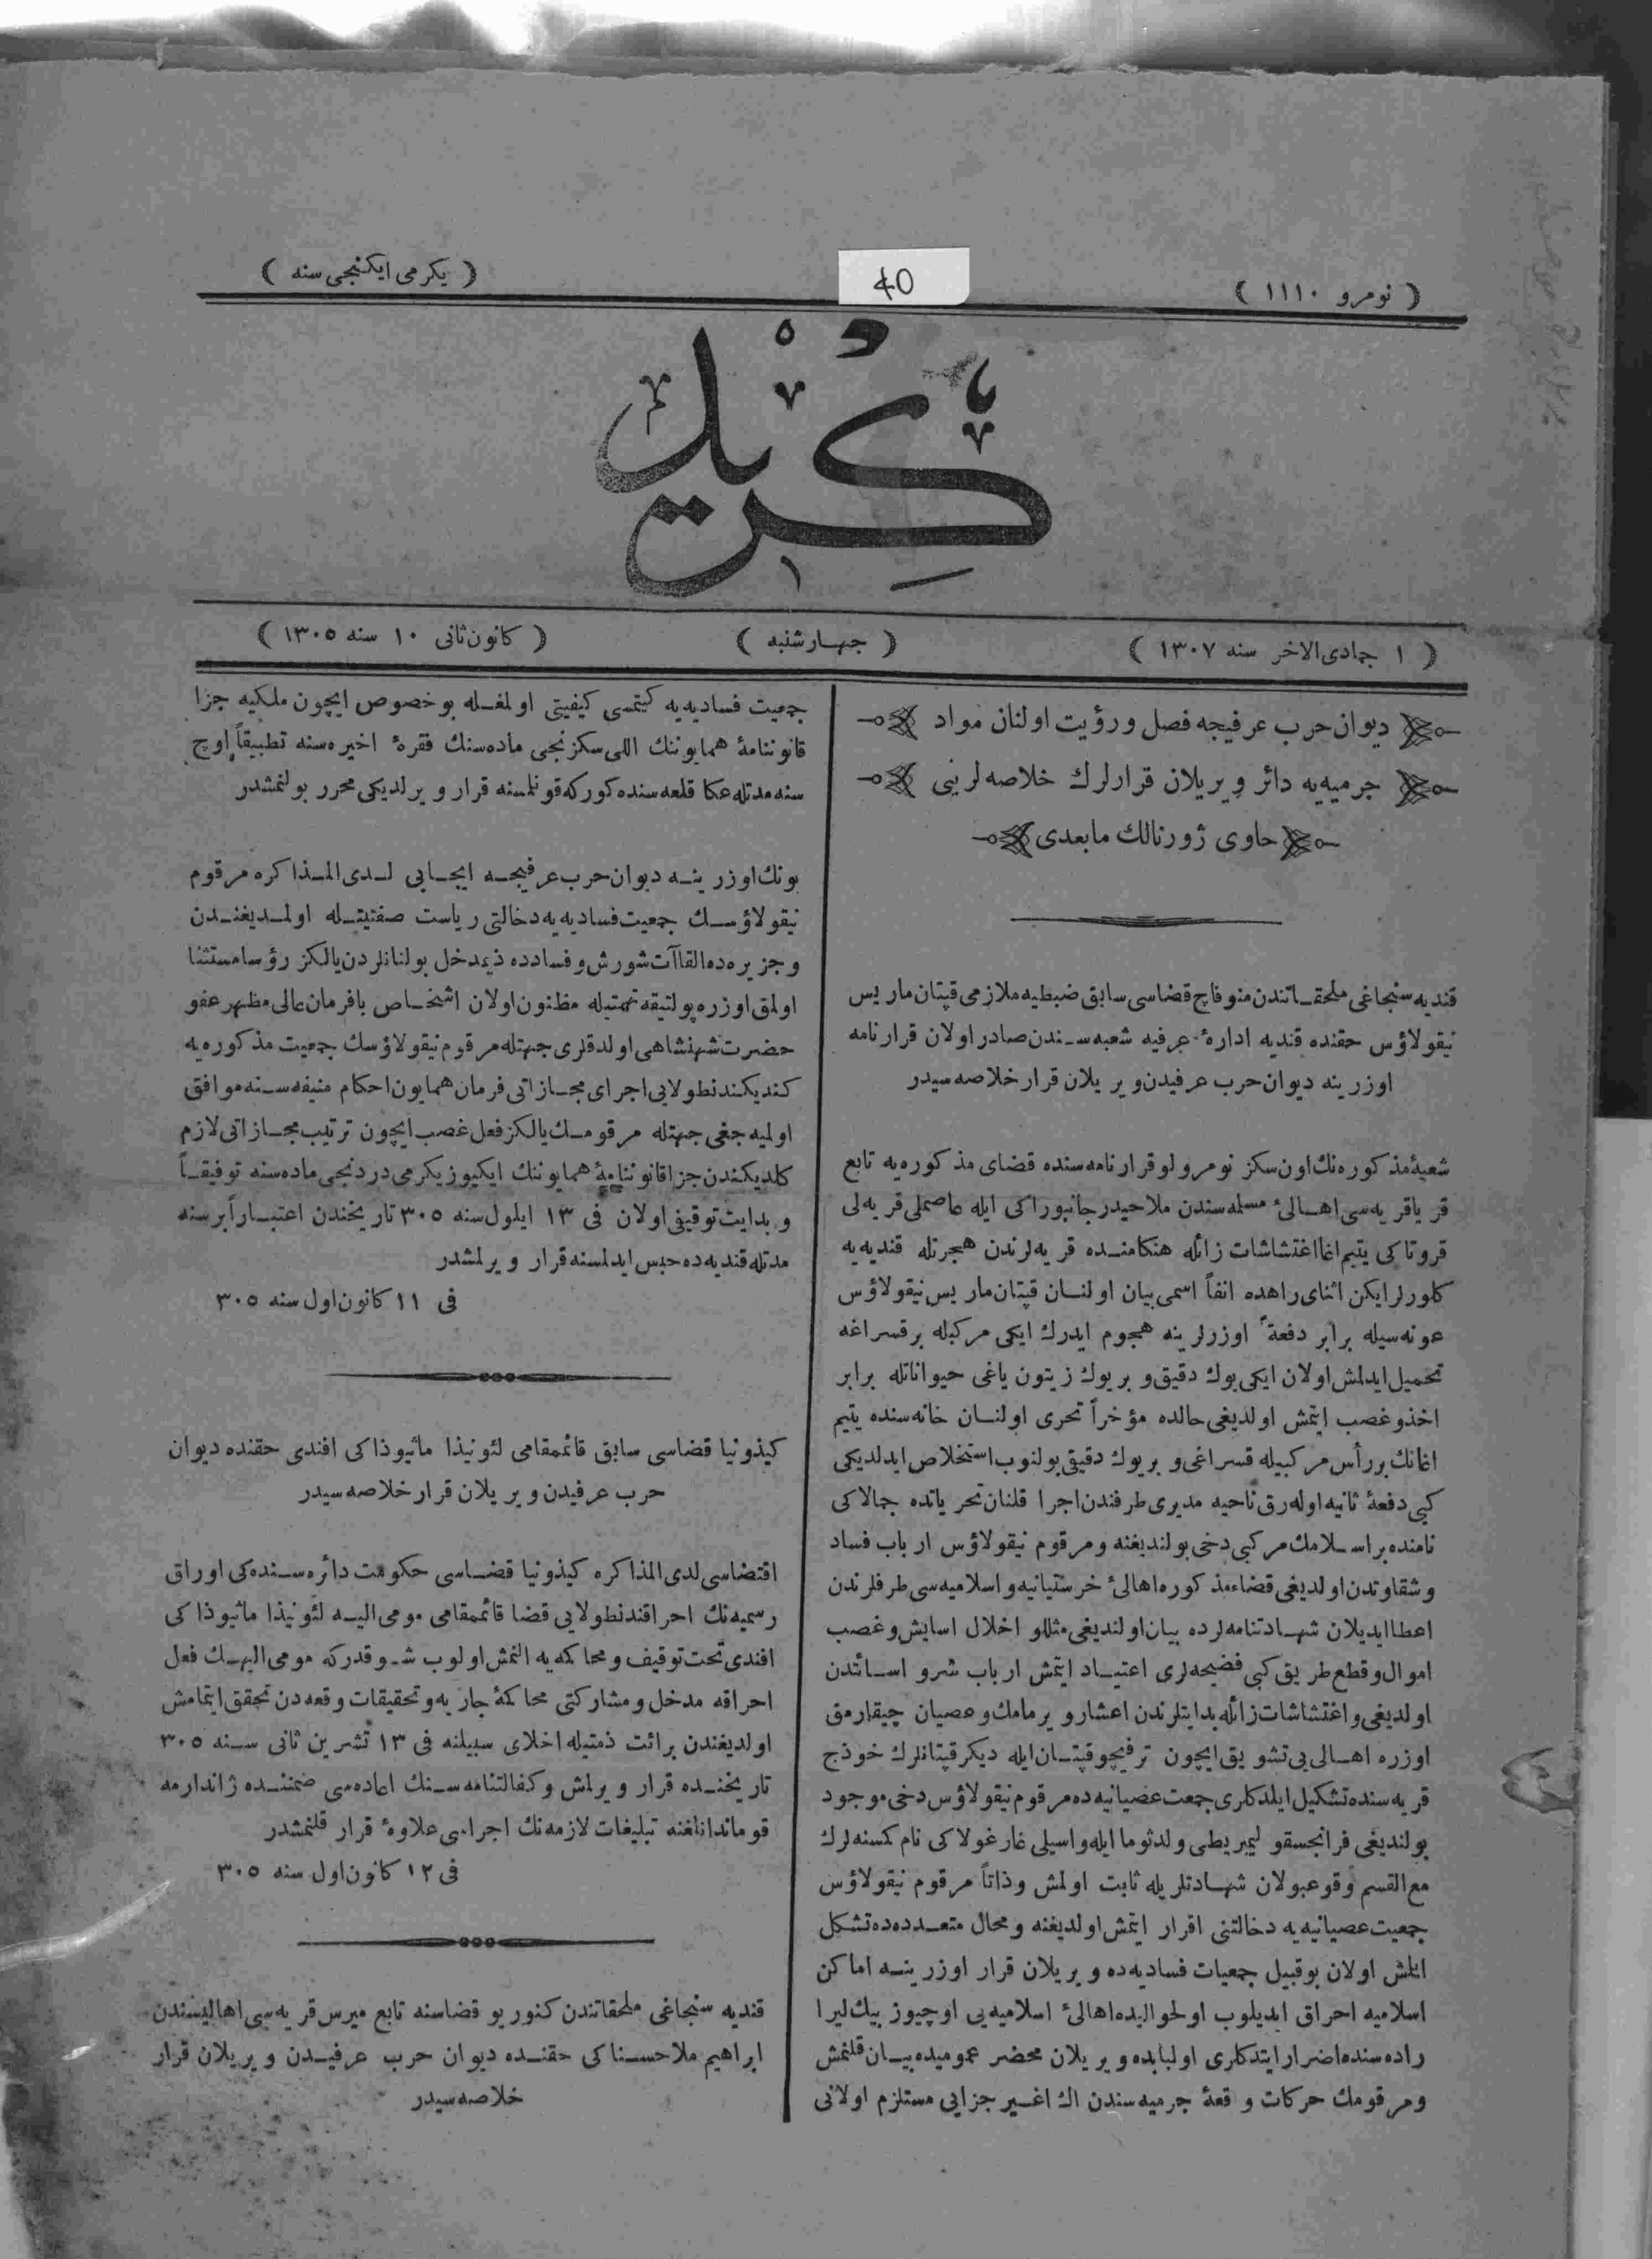 ( نومرو ١١١٠ )
40
( یكرمی ایكنجی سنه )
كرید
( ١ جمادی‌الاخر سنه ١٣٠٧ )
( چهارشنبه )
( كانون ثانی ١٠ سنه ١٣٠٥ )
دیوان حرب عرفیجه فصل ورؤیت اولنان مواد
جرمیه‌یه دائر ویریلان قرارلرك خلاصه‌لرینی
حاوی ژورنالك مابعدی
قندیه سنجاغی ملحقاتندن منوفاچ قضاسی سابق ضبطیه ملازمی قپتان ماریس
نیقولاؤس حقنده قندیه ادارهٔ عرفیه شعبه‌سندن صادر اولان قرارنامه
اوزرینه دیوان حرب عرفیدن ویریلان قرار خلاصه‌سیدر
شعبهٔ مذكوره‌نك اون سكز نومرولو قرارنامه‌سنده قضای مذكوره‌یه تابع
قریاقریه‌سی اهالیٔ مسلمه‌سندن ملا حیدر جانبوراكی ایله عاصملی قریه‌لی
قروتاكی یتیم اغا اغتشاشات زائله هنكامنده قریه‌لرندن هجرتله قندیه‌یه
كلورلرایكن اثنای راهده انفاً اسمی بیان اولنان قپتان ماریس نیقولاؤس
عونه‌سیله برابر دفعةً اوزرلرینه هجوم ایدرك ایكی مركبله برقسراغه
تحمیل ایدلمش اولان ایكی یوك دقیق و بریوك زیتون یاغی حیواناتله برابر
اخذ و غصب ایتمش اولدیغی حالده مؤخراً تحری اولنان خانه‌سنده یتیم
اغانك بررأس مركبیله قسراغی و بریوك دقیقی بولنوب استخلاص ایدلدیكی
كبی دفعهٔ ثانیه اوله‌رق ناحیه مدیری طرفندن اجرا قلنان تحریاتده جمالاكی
نامنده براسلامك مركبی دخی بولندیغنه ومرقوم نیقولاؤس ارباب فساد
وشقاوتدن اولدیغی قضاءمذكوره اهالیٔ خرستیانیه و اسلامیه‌سی طرفلرندن
اعطا ایدیلان شهادتنامه‌لرده بیان اولندیغی مثللو اخلال اسایش و غصب
اموال و قطع طریق كبی فضیحه‌لری اعتیاد ایتمش ارباب شرو اسائتدن
اولدیغی و اغتشاشات زائله بدایتلرندن اعشار ویرمامك و عصیان چیقارمق
اوزره اهالی‌یی تشویق ایچون ترفیچو قپتان ایله دیكر قپتانلرك خوذج
قریه‌سنده تشكیل ایلدكلری جمعت عصیانیه‌ده مرقوم نیقولاؤس دخی موجود
بولندیغی فرانجسقو لیمبریطی ولدثوما ایله واسیلی غارغولاكی نام كمسنه‌لرك
مع‌القسم وقوعبولان شهادتلریله ثابت اولمش وذاتاً مرقوم نیقولاؤس
جمعیت عصیانیه‌یه دخالتنی اقرار ایتمش اولدیغنه و محال متعدده‌ده تشكل
ایلمش اولان بوقبیل جمعیات فسادیه‌ده ویریلان قرار اوزرینه اماكن
اسلامیه احراق ایدیلوب اولحوالیده اهالیٔ اسلامیه‌یی اوچیوز بیك لیرا
راده‌سنده اضرار ایتدكلری اولبابده ویریلان محضر عمومیده بیان قلنمش
ومرقومك حركات واقعهٔ جرمیه‌سندن اك اغیر جزایی مستلزم اولانی
جمعیت فسادیه‌یه كیتمسی كیفیتی اولمغله بوخصوص ایچون ملكیه جزا
قانوننامهٔ همایوننك اللی سكزنجی ماده‌سنك فقرهٔ اخیره‌سنه تطبیقاً اوچ
سنه مدتله عكا قلعه‌سنده كوركه قونلمسنه قرار ویرلدیكی محرر بولنمشدر
بونك اوزرینه دیوان حرب عرفیجه ایجابی لدی المذاكره مرقوم
نیقولاؤسك جمعیت فسادیه‌یه دخالتی ریاست صفتیله اولمدیغندن
وجزیره‌ده القاآت شورش و فسادده ذیمدخل بولنانلردن یالكز رؤسا مستثنا
اولمق اوزره پولتیقه تهمتیله مظنون اولان اشخاص بافرمان عالی مظهر عفو
حضرت شهنشاهی اولدقلری جهتله مرقوم نیقولاؤسك جمعیت مذكوره‌یه
كندیكندنطولایی اجرای مجازاتی فرمان همایون احكام منیفه‌سنه موافق
اولمیه‌جغی جهتله مرقومك یالكز فعل غصب ایچون ترتیب مجازاتی لازم
كلدیكندن جزا قانوننامهٔ همایوننك ایكیوز یكرمی دردنجی ماده‌سنه توفیقاً
و بدایت توقیفی اولان فی ١٣ ایلول سنه ٣٠٥ تاریخندن اعتباراً برسنه
مدتله قندیه‌ده حبس ایدلمسنه قرار ویرلمشدر
فی ١١ كانون اول سنه ٣٠٥
كیذونیا قضاسی سابق قائممقامی لئونیذا ماثیوذاكی افندی حقنده دیوان
حرب عرفیدن ویریلان قرار خلاصه‌سیدر
اقتضاسی لدی المذاكره كیذونیا قضاسی حكومت دائره‌سنده‌كی اوراق
رسمیه‌نك احراقندنطولایی قضا قائممقامی مومی‌الیه لئونیذا ماثیوذاكی
افندی تحت توقیف و محاكمه‌یه النمش اولوب شوقدركه مومی‌الیهك فعل
احراقه مدخل و مشاركتی محاكمهٔ جاریه و تحقیقات وقعه‌دن تحقق ایتمامش
اولدیغندن برائت ذمتیله اخلای سبیلنه فی ١٣ تشرین ثانی سنه ٣٠٥
تاریخنده قرار ویرلمش و كفالتنامه‌سنك اعاده‌سی ضمننده ژاندارمه
قوماندانلغنه تبلیغات لازمه‌نك اجراسی علاوهٔ قرار قلنمشدر
فی ١٢ كانون اول سنه ٣٠٥
قندیه سنجاغی ملحقاتندن كنوریو قضاسنه تابع میرس قریه‌سی اهالیسندن
ابراهیم ملاحسناكی حقنده دیوان حرب عرفیدن ویریلان قرار
خلاصه‌سیدر